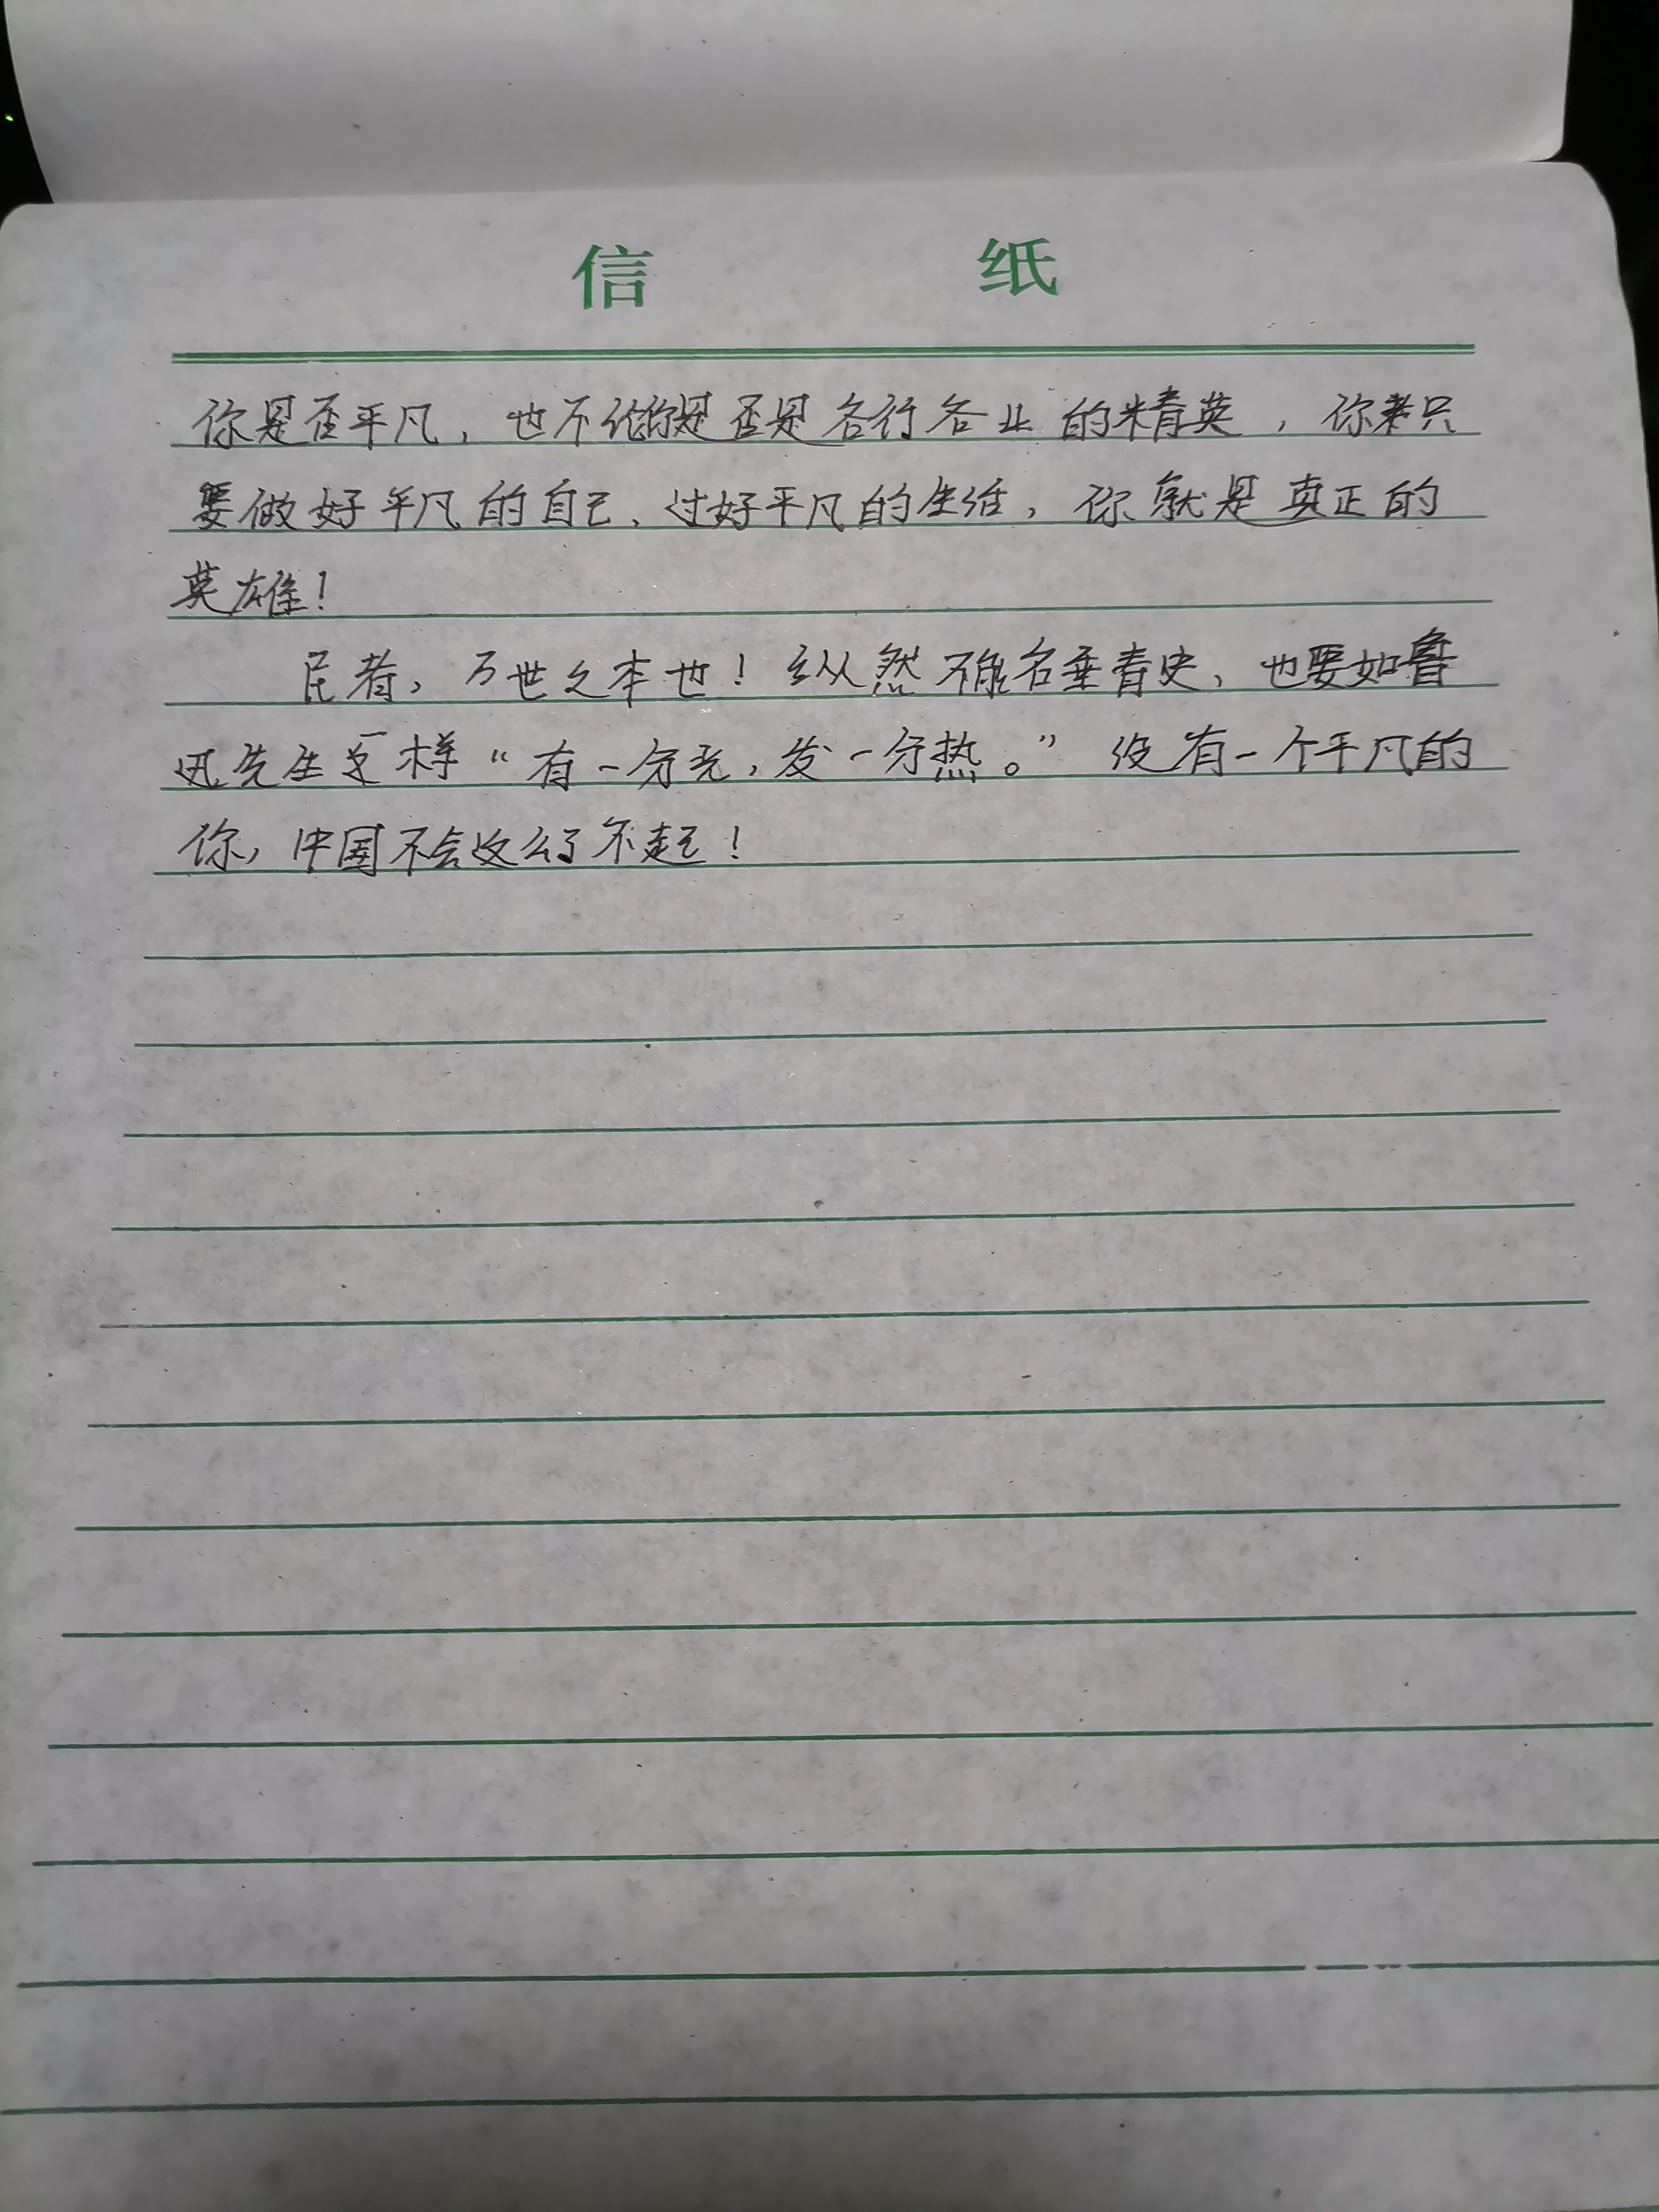 信 纸
你是否平凡，也不论你是否是各行各业的精英，你只
要做好平凡的自己、过好平凡的生活，你就是真正的
英雄！
民者，万世之本也！纵然不能名垂青史、也要如鲁
迅先生那样“有一分光，发一分热。”没有一个平凡的
你，中国不会这么了不起！